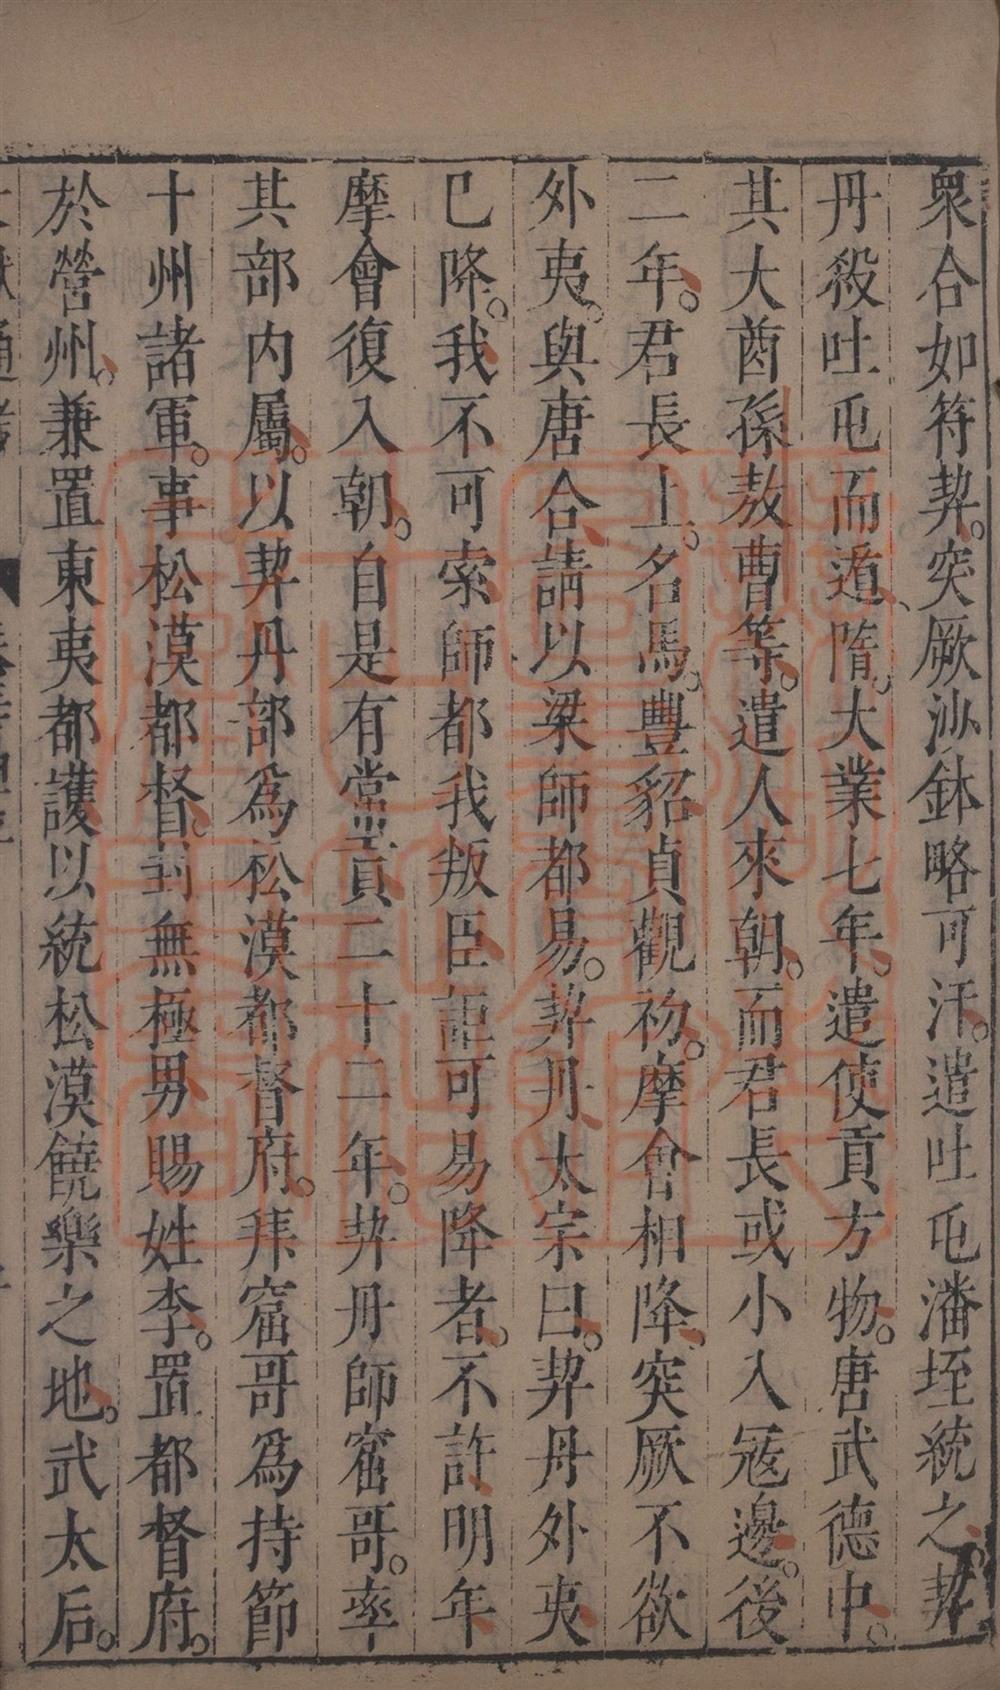 衆合如符契突厥沙鉢略可汗遣吐屯潘垤統之契
丹殺吐屯而遁隋大業七年遣使貢方物唐武德中
其大酋孫敖曹等遣人來朝而君長或小入寇邊後
二年君長上名馬豐貂貞觀初摩會相降突厥不欲
外夷與唐合請以梁師都易契丹太宗曰契丹外夷
已降我不可索師都我叛臣詎可易降者不許明年
摩會復入朝自是有常貢二十二年契丹師窟哥率
其部内屬以契丹部爲松漠都督府拜窟哥爲持節
十州諸軍事松漠都督封無極男賜姓李置都督府
於營州兼置東夷都護以統松漠饒樂之地武太后